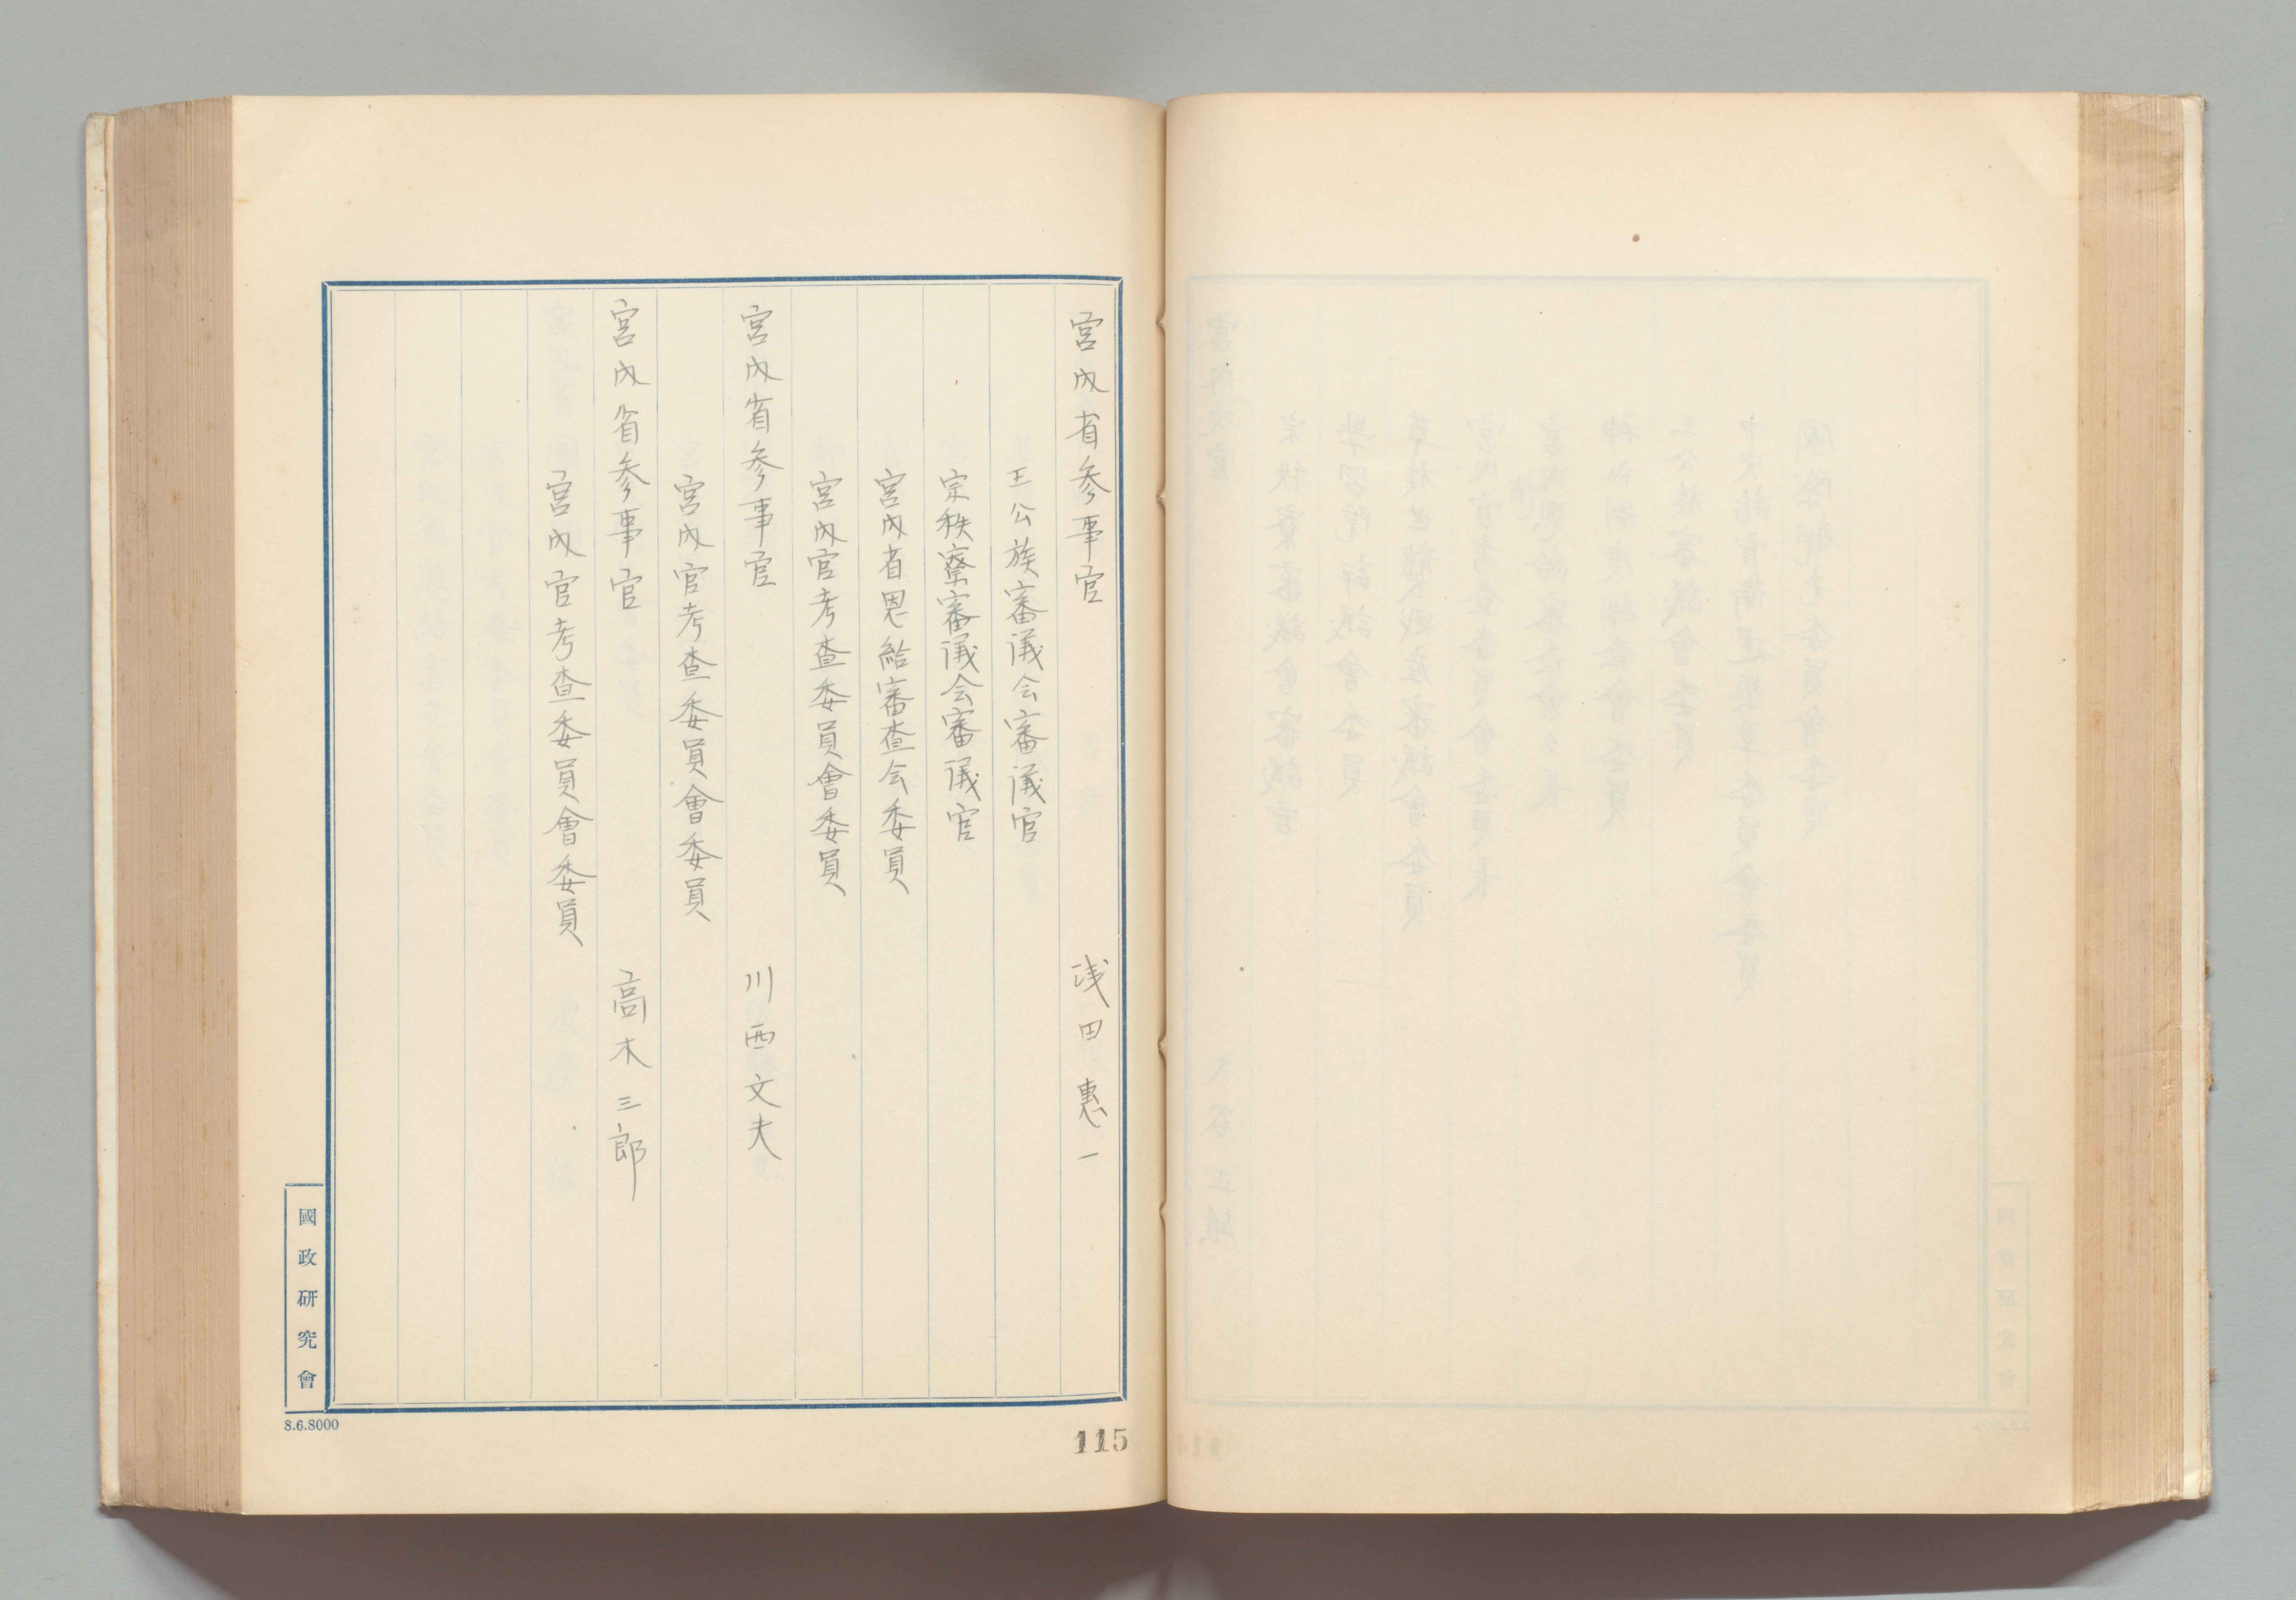 宮内省参事官 浅田惠一
王公族審議会審議官
宗秩寮審議会審議官
宮内省恩給審査会委員
宮内官考査委員會委員
宮内省参事官 川西文夫
宮内官考査委員會委員
宮内省参事官 高木三郎
宮内官考査委員會委員
國政研究會
8.6.8000
115